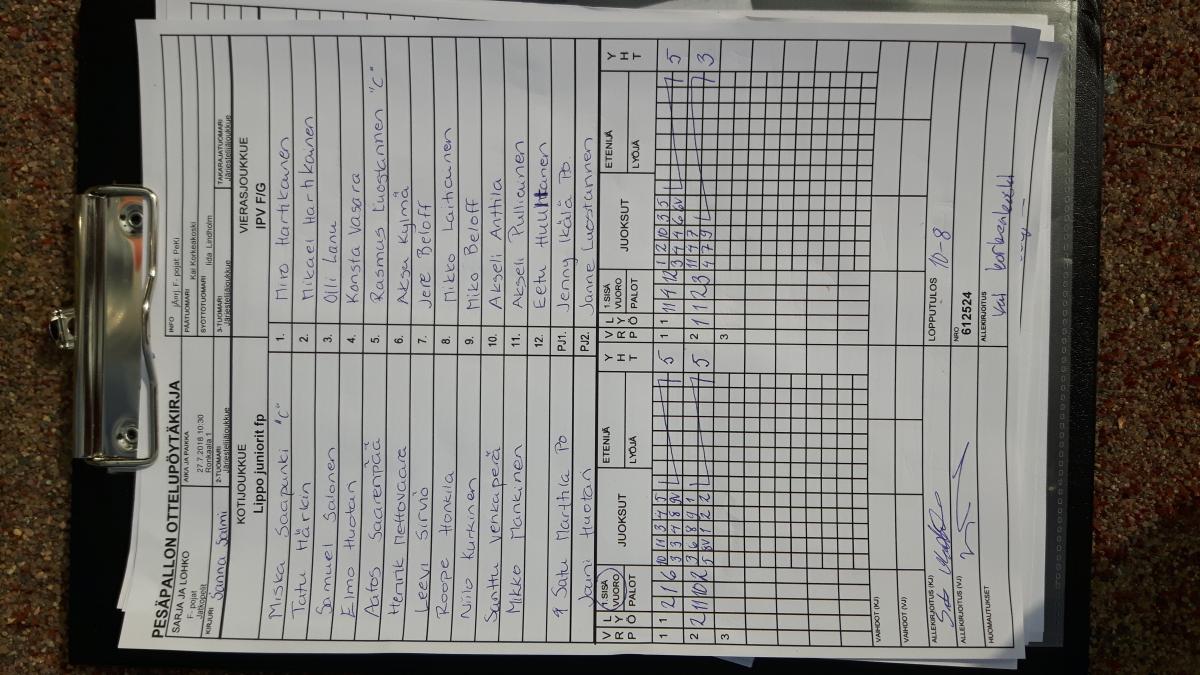 PESÄPALLON OTTELUPÖYTÄKIRJA
SARJA JA LOHKO
F- pojat
Jatkopelit
AIKA JA PAIKKA
27.7.2018 10:30
Ronkaala 1
INFO jÄrj. F- pojat PeKi
PÄÄTUOMARI Kai Korkeakoski
SYÖTTÖTUOMARI Iida Lindholm
KIRJURI Sanna Salmi
2-TUOMARI Järjestelijäjoukkue
3-TUOMARI Järjestelijäjoukkue
TAKARAJATUOMARI Järjestelijäjoukkue
KOTIJOUKKUE
Lippo juniorit fp
VIERASJOUKKUE
IPV F/G
Miska Saapunki "C" 1. Miro Hartikainen
Tatu Härkin 2. Mikael Hartikainen
Samuel Salonen 3. Olli Lanu
Elmo Huotari 4. Konsta Vasara
Aatos Saarenpää 5. Rasmus Luostarinen "C"
Henrik Mettovaara 6. Aksu Kylmä
Leevi Sirviö 7. Jere Beloff
Roope Honkila 8. Mikko Laitiainen
Niilo Kurkinen 9. Miko Beloff
Santtu Venkaperä 10. Akseli Anttila
Mikko Manninen 11. Akseli Pulliainen
12. Eetu
Satu Marttila PO PJ1. Jenny Ikälä PO.
Jouni Huotari PJ2. Janne Luostarinen
V R L Y P Ö 1.SISÄ VUORO PALOT JUOKSUT ETENIJÄ LYÖJÄ Y H T
V R L Y P Ö 1.SISÄ VUORO PALOT JUOKSUT ETENIJÄ LYÖJÄ Y H T
1 1 2 1 6 10 11 3 4 5 5
3 3 4 8 9V
1 11 4 12 1 2 10 3 5 5
3 4 4 6 6V
2 2 11 10 2 3 6 8 9 1 5
5 8V 1 2 2
2 1 12 3 11 4 7 3
4 7 9
3
3
VAIHDOT (KJ)
VAIHDOT (VJ)
ALLEKIRJOITUS (KJ)
LOPPUTULOS 10-8
ALLEKIRJOITUS (VJ)
NRO
612524
HUOMAUTUKSET
ALLEKIRJOITUS